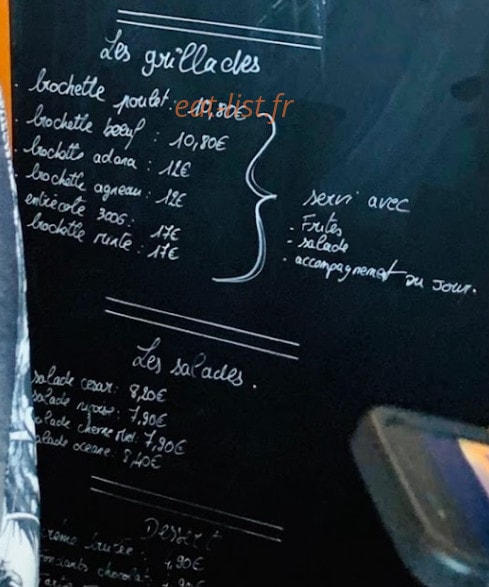 Les grillades
. brochette poulet: 10,80€
eat-list.fr
. brochette bœuf : 10,80€
. brochette adana : 12€
. brochette agneau : 12€
entrecote 300G: 17€
brochette mixte : 17€
servi avec
- Frites
- salade
- accompagnement du jour.
Les salades.
salade cesar: 8,20€
salade : 7,90€
salade chevre miel: 7,90€
salade oceane: 8,40€
Dessert
crème brulée : 4,90€
fondants chocolat: